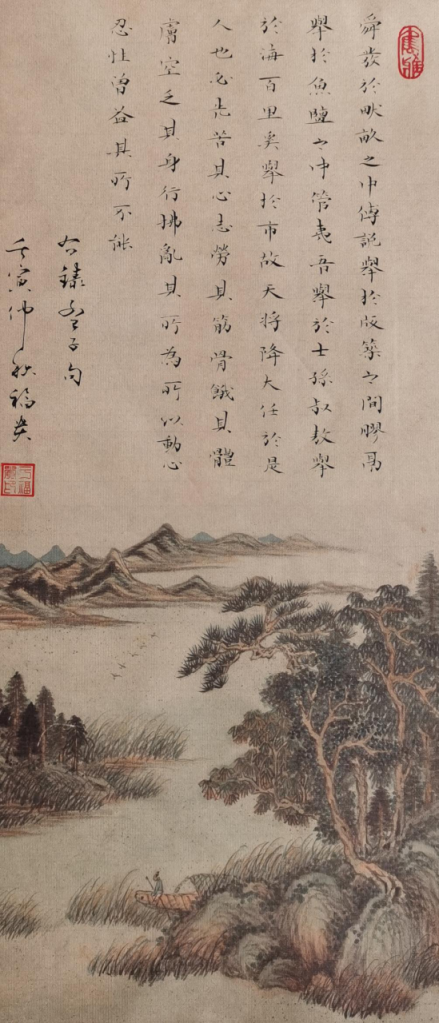 舜發於畎畝之中傅説舉於版築之間膠鬲
舉於魚鹽之中管夷吾舉於士孫叔敖舉
於海百里奚舉於市故天將降大任於是
人也必先苦其心志勞其筋骨餓其體
膚空乏其身行拂亂其所為所以動心
忍性曾益其所不能
右錄孟子句
壬寅仲秋福